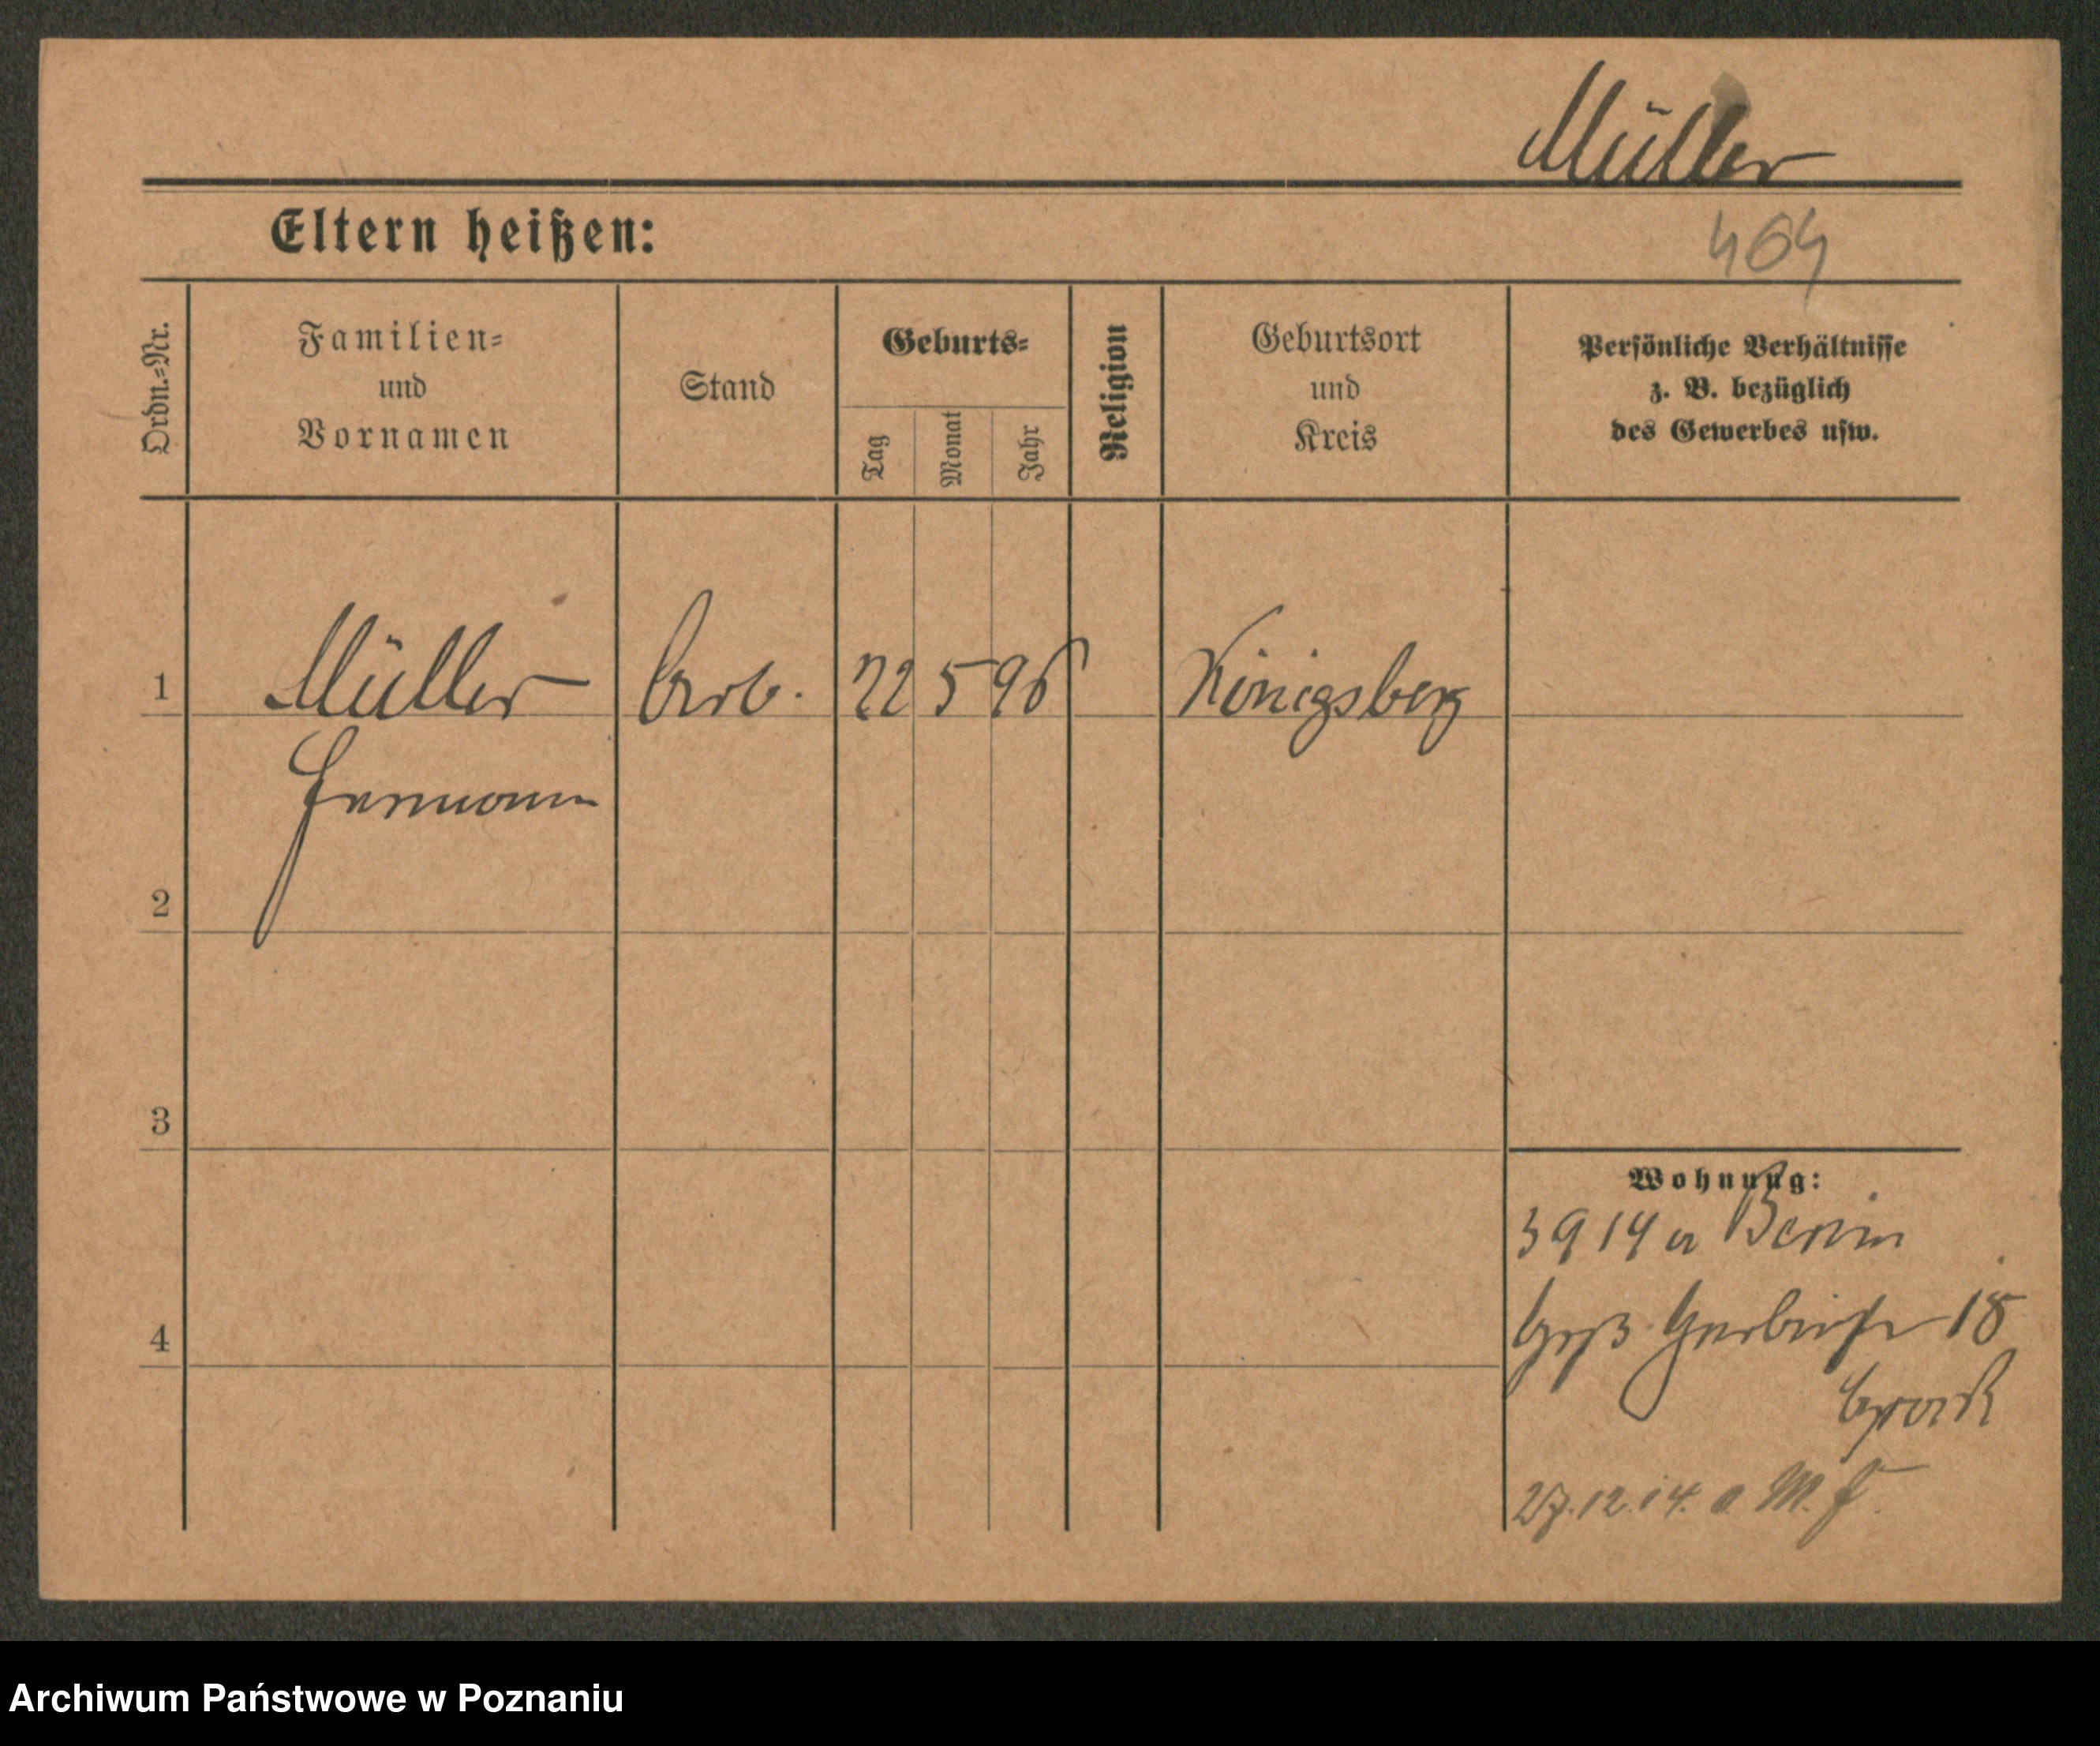 Müller
464
Eltern heißen:
Ordn.=Nr.
Familien=
und
Vornamen
Stand
Geburts=
Tag
Monat
Jahr
Religion
Geburtsort
und
Kreis
Persönliche Verhältnisse
z. B. bezüglich
des Gewerbes usw.
1 Müller Arb. 22 5 96 Königsberg
Hermann
2
3
Wohnung:
3 9 14 a Berlin
Gerberstr 18
4
27.12.14. a M. F.
Archiwum Państwowe w Poznaniu